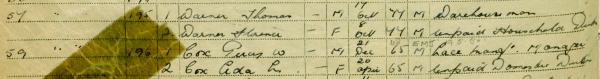 17
57 195 1 Warner Thomas - M Oct 77 M Warehouseman
8
2 Warner Florence - F Oct 77 M Unpaid Household Duties
21
59 196 1 Cox Percy W - M Dec 65 M Lace Manfr. Manager
20
2 Cox Ada L. - F April 65 M Unpaid Domestic Duties